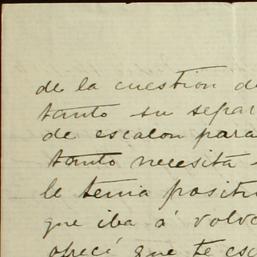 de la cuestion d
tanto su separ
de escalon para
tanto necesita
le tenia positi
que iba á volve
ofrecí que te esc